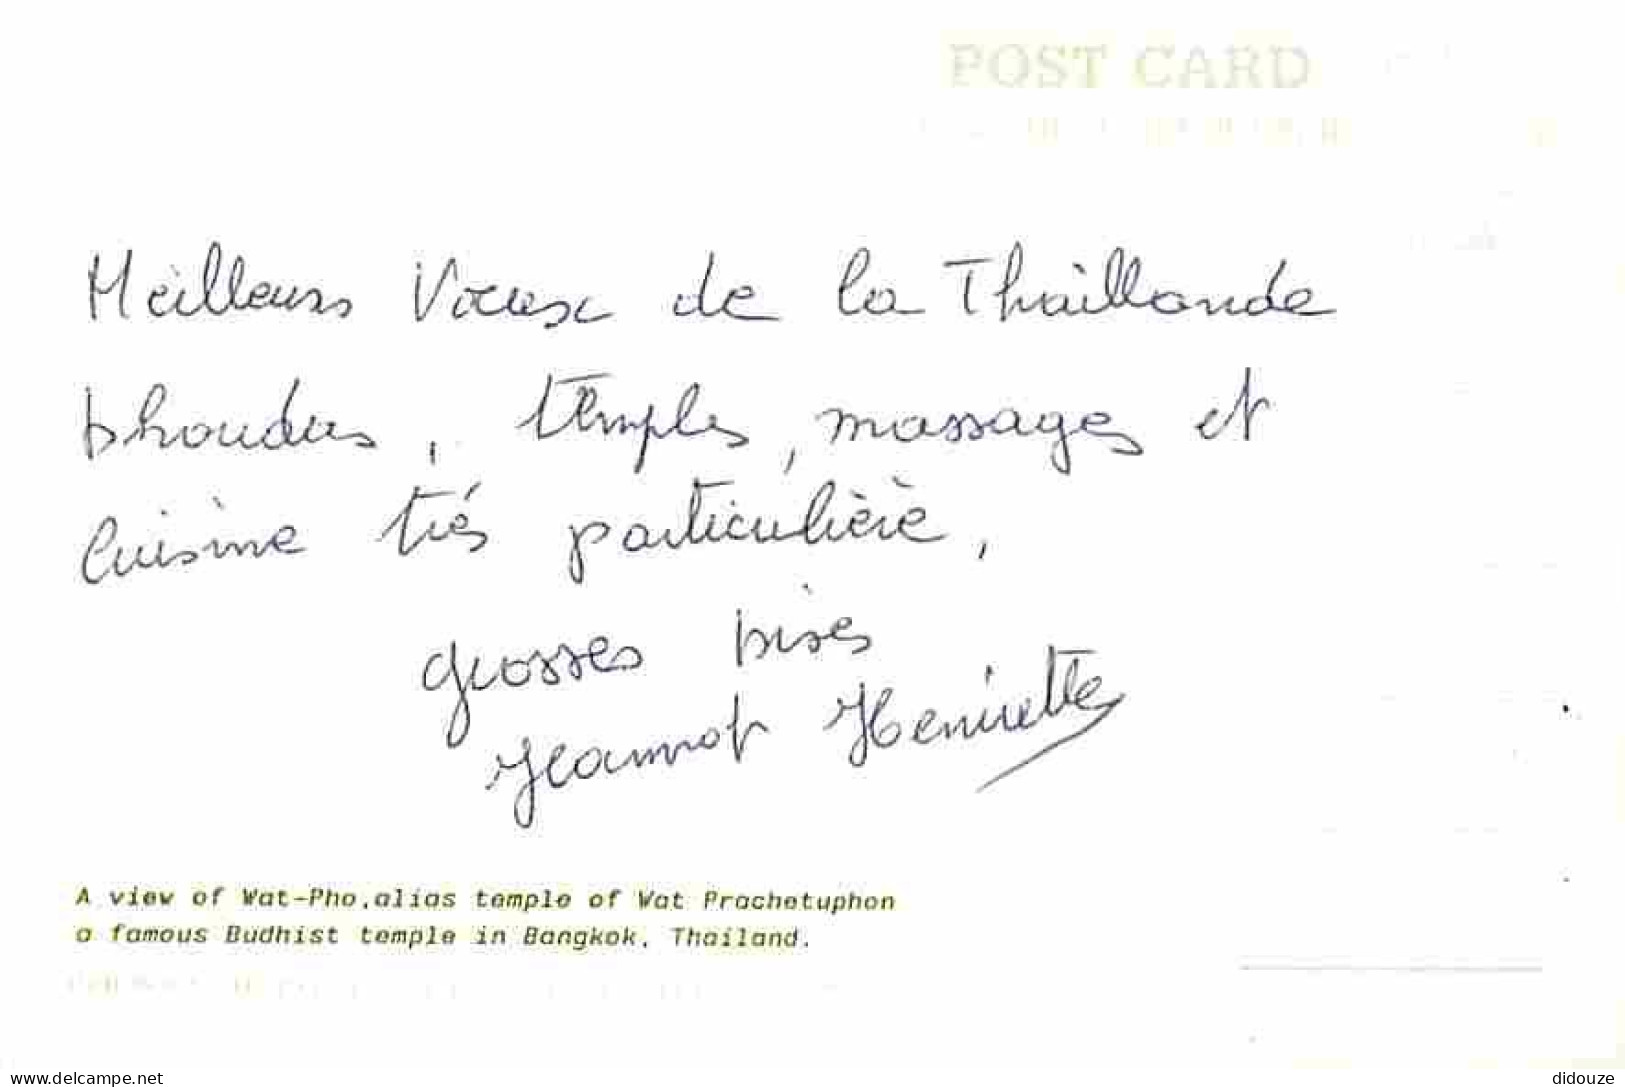 POST CARD
Meilleurs Voeux de la Thaillande
bhoudas, temples, massages et
cuisine très particulière,
grosses bises
Jeannot Henriette
A view of Wat-Pho,alias temple of Wat Prachetuphon
a famous Budhist temple in Bangkok, Thailand.
www.delcampe.net
didouze